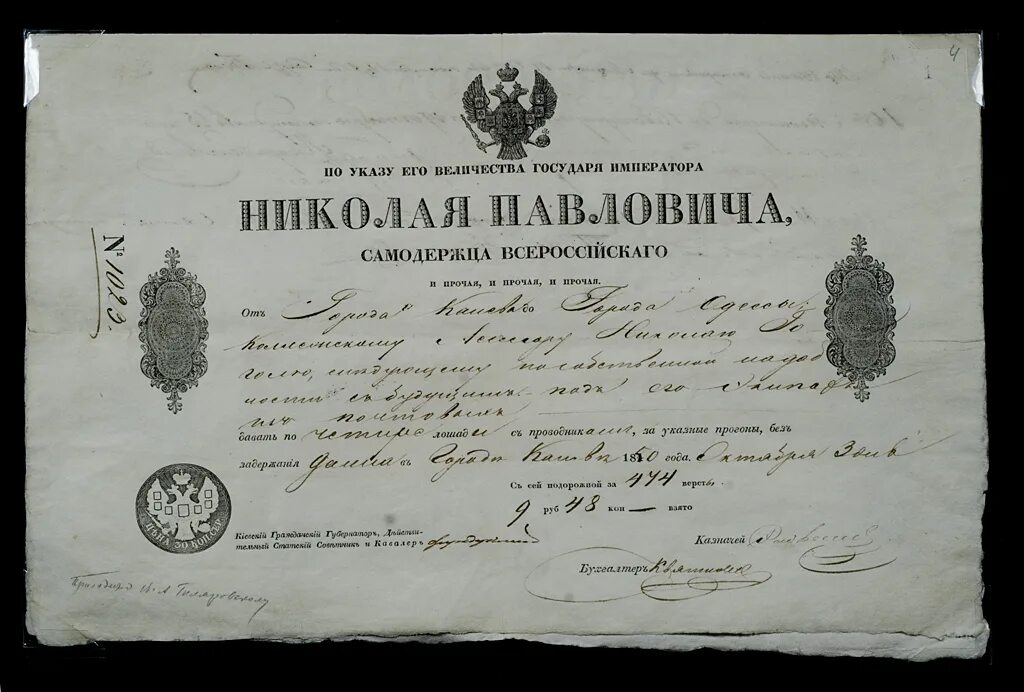 4
ПО УКАЗУ ЕГО ВЕЛИЧЕСТВА ГОСУДАРЯ ИМПЕРАТОРА
НИКОЛАЯ ПАВЛОВИЧА,
САМОДЕРЖЦА ВСЕРОССІЙСКАГО
И ПРОЧАЯ, И ПРОЧАЯ, И ПРОЧАЯ.
№ 1023.
Отъ Города Кіева до Города Одессы
Коллежскому Ассесору Николаю Го
голю, слѣдующему по собственной надоб
ности съ будущимъ подъ его Экипажъ
почтовыхъ
давать по четыре лошади съ проводникомъ, за указные прогоны, безъ
задержанія Данна въ Городѣ Кіевѣ 1850 года. Октября дня
Съ сей подорожной за 474 версты
9 руб 48 коп — взято
ЦѢНА 30 КОПѢЕ. СЕРЕ.
Кіевскій Гражданскій Губернаторъ, Дѣйстви-
тельный Статскій Совѣтникъ и Кавалеръ Фундуклей
Казначей
Бухгалтеръ
В. А. Гиляровскому